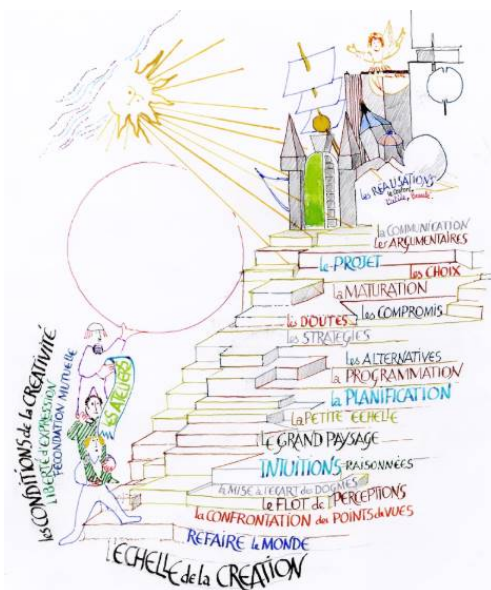 les RÉALISATIONS
la COMMUNICATION
les ARGUMENTAIRES
le PROJET
les CHOIX
la MATURATION
les DOUTES
les COMPROMIS
les STRATÉGIES
les ALTERNATIVES
la PROGRAMMATION
la PLANIFICATION
la PETITE ECHELLE
LE GRAND PAYSAGE
INTUITIONS RAISONNÉES
la MISE à l'ECART des DOGMES
LE FLOT de PERCEPTIONS
la CONFRONTATION des POINTS de VUES
REFAIRE le MONDE
L'ECHELLE de la CREATION
les CONDITIONS de la CREATIVITÉ
LIBERTÉ d'EXPRESSION
FÉCONDATION MUTUELLE
LES ATELIERS